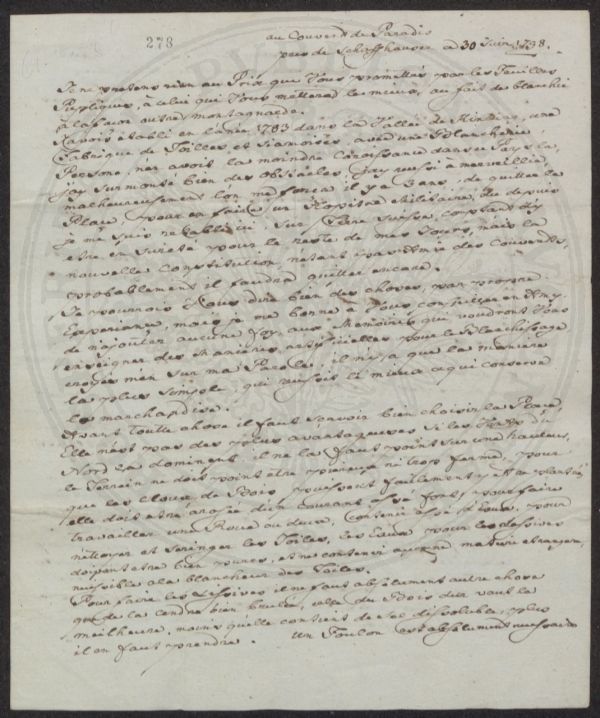 278
au Couvent de Paradis
pres de Schaffhausen a 30 Juin 1798.
Je ne pretens rien au Prix que Vous promettés par les feuilles
Publiques, à celui que Vous mettera le mieux, au fait de blanchir
à la facon outre montagnarde.
J'avois établi en l'anée 1783 dans la Vallée de une
Fabrique de Toilles, et Siamoises, avec une Blancherie.
Persone, n'en avoit la moindre Conoissance dans ce Pays la
j'ay surmonté bien des Obstacles, j'ay reussi à merveille,
malheureusement l'on me forca il y a 3 ans, de quitter la
Place, pour en faire un Hopital Militaire, de depuis
je me suis rétabli ici, sur Terre suisse, comptant d'y
etre en sureté pour la reste de mes Jours, mais la
nouvelle Constitution n'etant pas Amie des Couvents,
probablement il faudra quitter encore.
Je pourrois Vous dire bien des choses, par propre
Experience, mais je me borne à Vous conseiller en Amy,
de n'ajouter aucune foy aux Memoires qui voudront Vous
enseigner des Manieres artificielles pour le Blanchissage
croyés m'en sur ma Parole, il n'y a que la maniere
la plus simple, qui reussit le mieux et qui conserve
la marchandise.
Avant toutte chose il faut scavoir bien choisir la Place
Elle n'est pas des plus avantageuses si les Vents du
Nord la dominent, il ne la faut point sur une hauteur,
le Terrein ne doit point etre pierreux ni trop ferme, pour
que les Cloux de Bois puissent facilement y etre plantés,
elle doit etre arosée d'un courant assé fort, pour faire
travailler une Roue ou deux, contenir assé d'Eaux, pour
nettoyer et seringer les Toiles, les Eaux pour les dessives
doivent etre bien pures, et ne contenir aucune matiere etrangere,
nuissible a la blancheur des Toiles.
Pour faire les Lessives il ne faut absolument autre chose
que de la cendre bien brulée, celle du Bois dur vaut la
meilheure, moins quelle contient de sel dissoluble, plus
il en faut prendre. Un Foulon est absolument necessaire